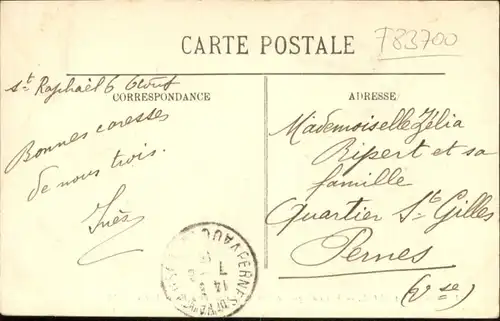 CARTE POSTALE
F83700
St Raphaël 6 Août
CORRESPONDANCE
ADRESSE
Bonnes caresses
de nous trois.
Inès
Mademoiselle Zélia
Ripert et sa
famille
Quartier St Gilles
Pernes
(Vse)
PERNES
14